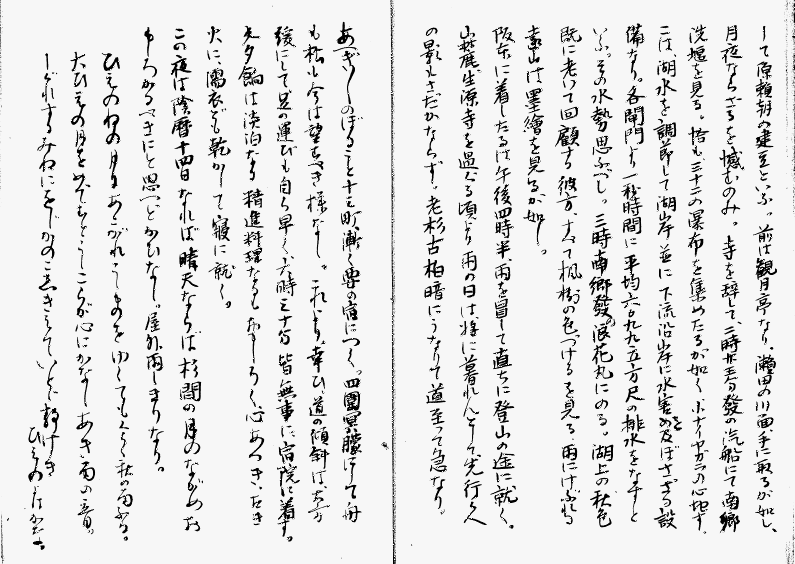 して源頼朝の建立といふ。前は観月亭なり、瀬田の川面手に取るが如し、
月夜ならざるを憾むのみ。寺を辞して二時 発の汽船にて南郷
洗堰を見る。恰も三十二の瀑布を集めたるが如く の心地す。
こは、湖水を調節して湖岸並に下流沿岸に水害を及ぼさざる設
備なり。各閘門より一秒時間に平均六〇九九五立方尺の排水をなすと
いふ。その水勢思ふべし。三時南郷發の浪花丸にのる。湖上の秋色
既に老いて回顧する彼方、すべて楓樹の色つけるを見る。雨にけぶれる
遠山は墨繪を見るが如し。
阪本に着したるは午後四時半、雨を冒して直ちに登山の途に就く。
山麓生源寺を過ぐる頃より雨の日は、将に暮れんとして先行く人
の影もさだかならず。老杉古柏暗にうなりて道至って急なり。
のぼること十三町漸く 四圍冥朦にして舟
も松も今は望むべき様なし。これより幸ひ道の傾斜は、大方
緩にして足の運びも自ら早く、六時三十分皆無事に宿院に着す。
夕餉は淡泊なる精進料理なるもおもしろく、心あつき
火に、濡衣ども乾かして寝に就く。
この夜は陰暦十四日なれば晴天ならば杉間の月のながめお
もしろかるべきにと思へどかひなし。屋外雨しきりなり。
ひえのねの月に あこがれてこしものを ゆくてもくらく秋の雨ふる。
大ひえの月を こころが心にかなしあき雨の音。
しぐれするみねにをじかのこゑきえていとど静けき